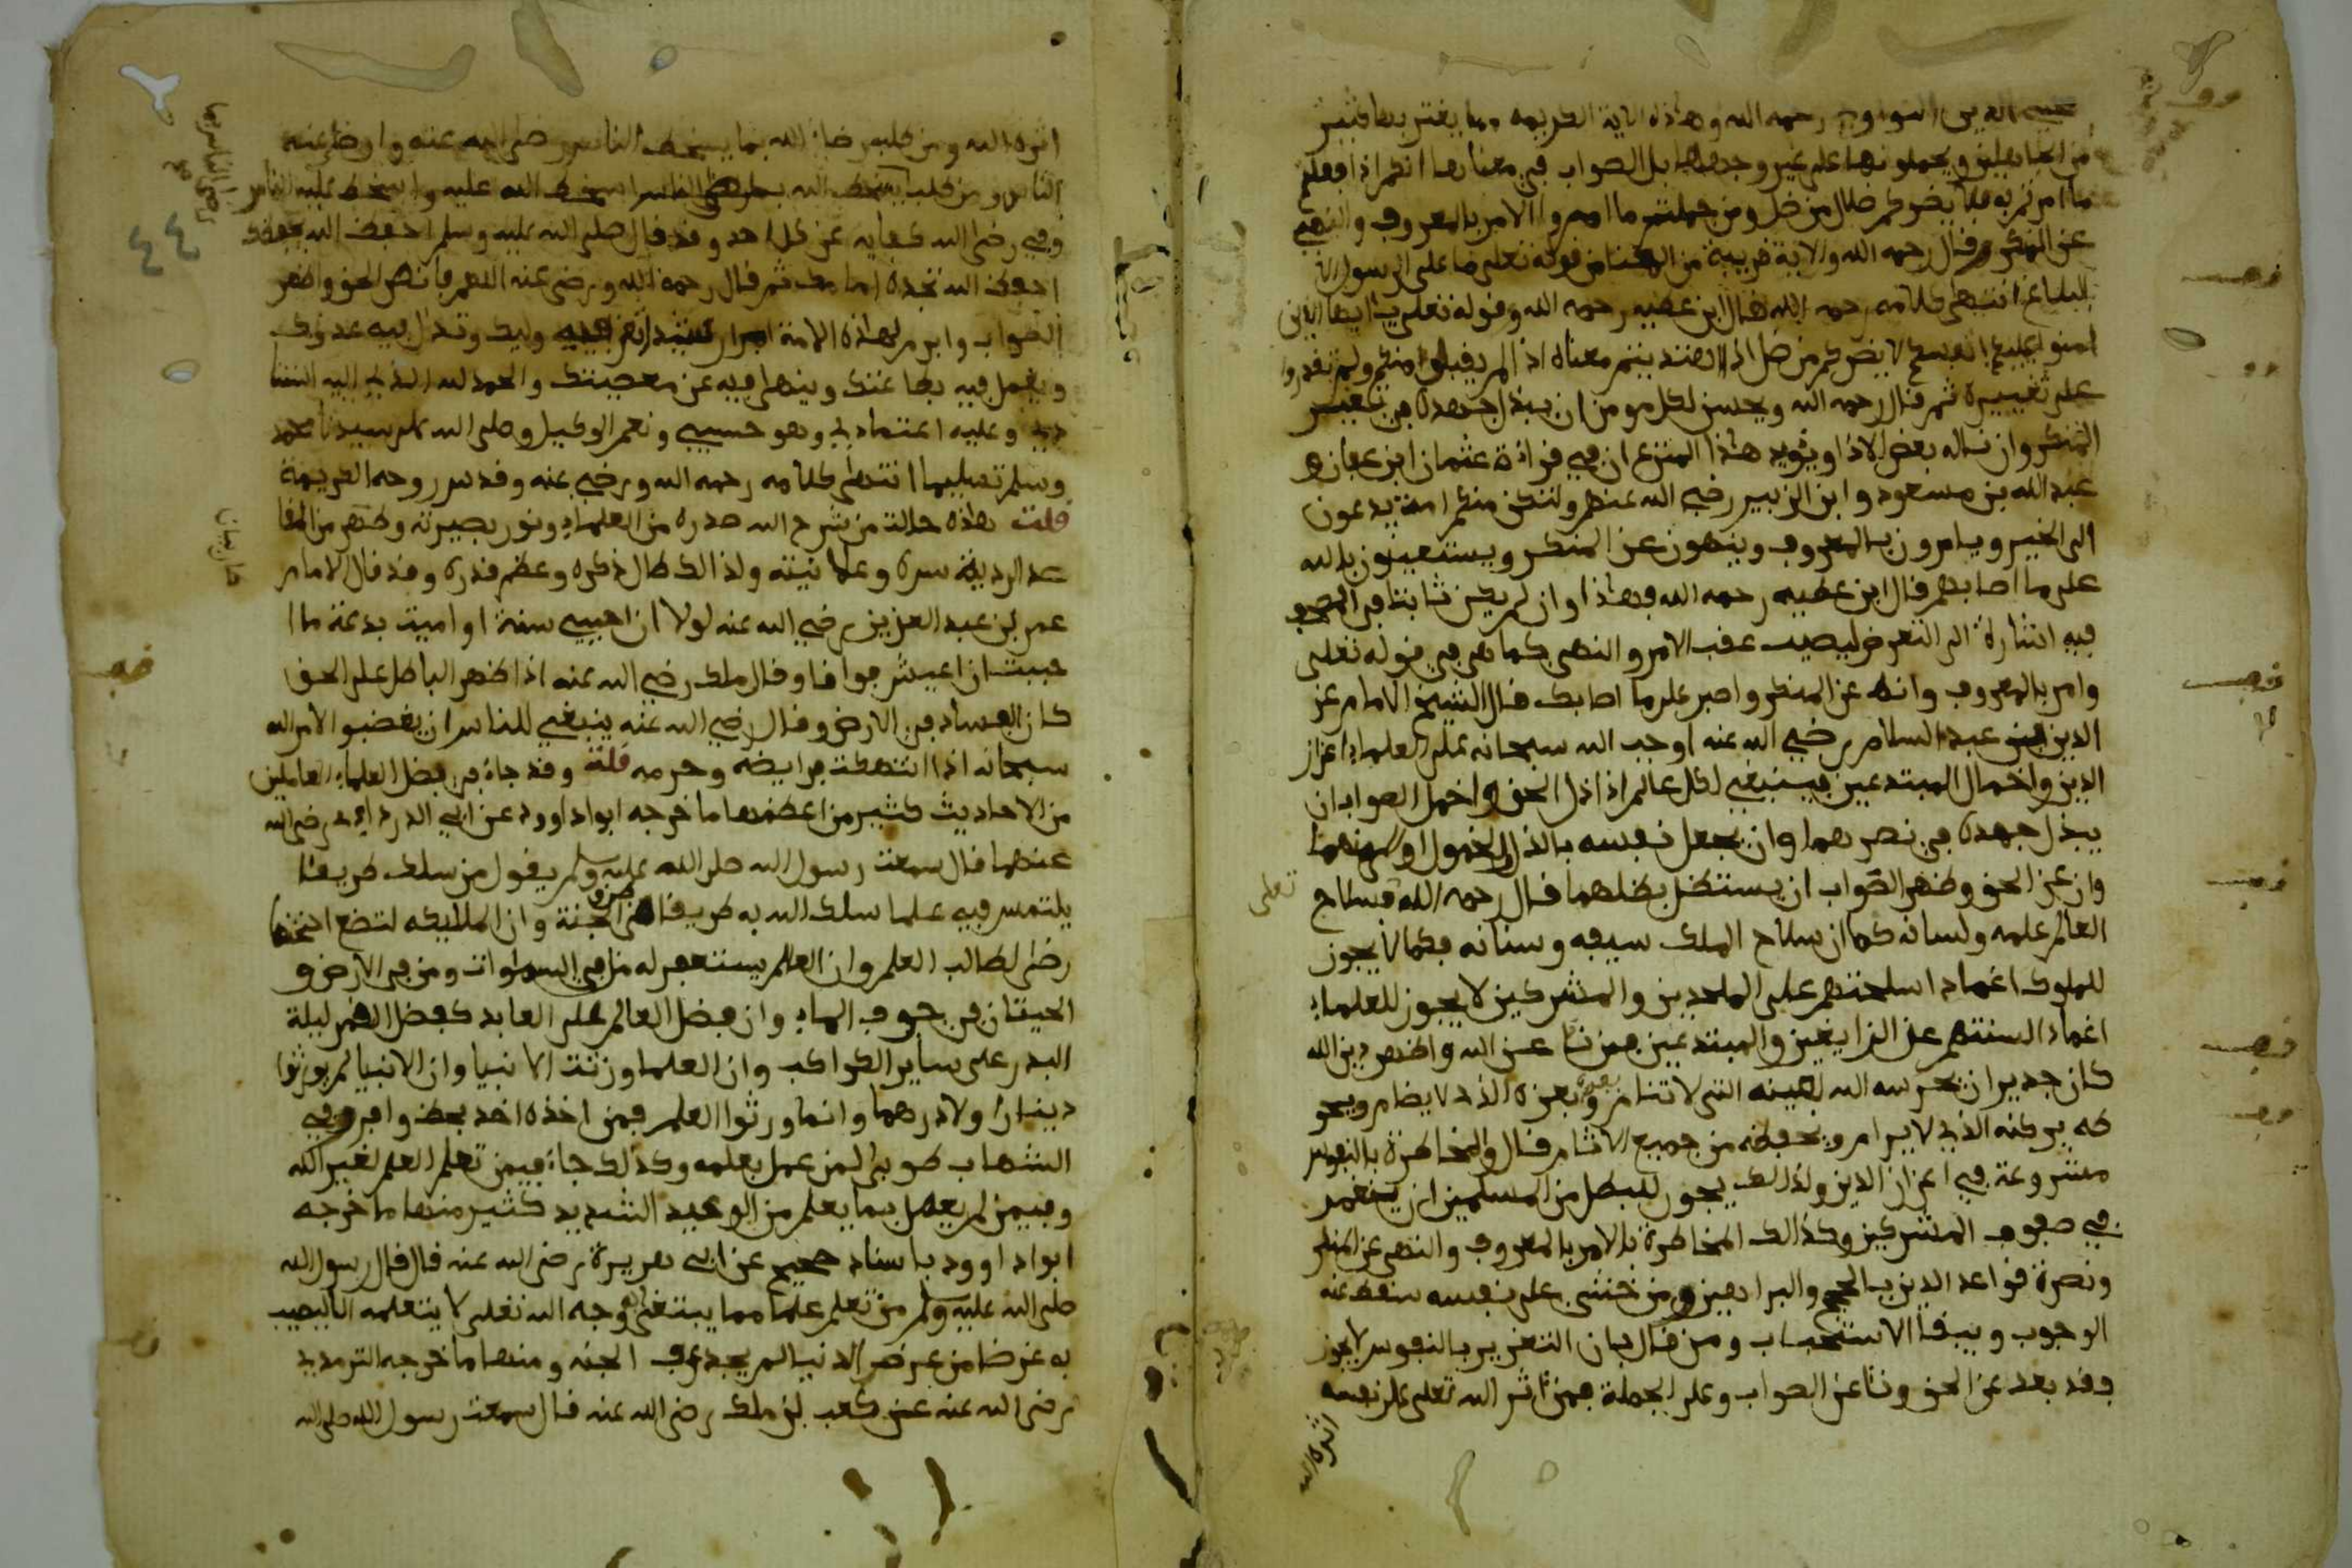 محيي الدين النواوي رحمه الله وهاذه الاية الكريمة مما يغتر بها كثير
من الجاهلين ويحملونها على غير وجهها بل الصواب في معناها انكم اذا فعلتم
ما امرتم به فلا يضركم ضلال من ضل ومن جملة ما امروا الامر بالمعروف والنهي
عن المنكر قال رحمه الله والاية قريبة من المعنا من قوله تعلى ما على الرسول الا
البلاغ انتهى كلامه رحمه الله قال ابن عطيه رحمه الله وقوله تعلى يا ايها الذين
امنوا عليكم انفسكم لا يضركم من ضل اذا اهتديتم معناه اذا لم يقبل منكم ولم تقدروا
على تغييره ثم قال رحمه الله ويحسن لكل مومن ان يبذل جهده في تغيير
المنكر وان ناله بعض الاذا ويؤيد هاذا المنزع ان في قراءة عثمان ابن عفان و
عبد الله بن مسعود وابن الزبير رضي الله عنهم ولتكن منكم امة يدعون
الى الخير ويامرون بالمعروف وينهون عن المنكر ويستعينون بالله
على ما اصابهم قال ابن عطيه رحمه الله فهاذا وان لم يكن ثابتا في المصحف
ففيه اشارة الى التعرض ليصيب عقب الامر والنهي كما هي في قوله تعلى
وامر بالمعروف وانه عن المنكر واصبر على ما اصابك قال الشيخ الامام عز
الدين بن عبد السلام رضي الله عنه اوجب الله سبحانه على العلماء اعزاز
الدين واخمال المبتدعين فينبغي لكل عالم اذا اذل الحق واخمل الصواب ان
يبذل جهده في نصرهما وان يجعل نفسه بالذل والخمول اولى منهما
وان عز الحق وظهر الصواب ان يستظل بظلهما قال رحمه الله فسلاح
تعلى
العالم علمه ولسانه كما ان سلاح الملك سيفه وسنانه فكما لا يجوز
للملوك اغماد اسلحتهم على الملحدين والمشركين لا يجوز للعلماء
اغماد السنتهم عن الزايغين والمبتدعين فمن ناضل عن الله واظهر دين الله
كان جديرا ان يحرسه الله بعينه التي لا تنام ويعزه بعزه الذي لا يضام ويحو
طه بركنه الذي لا يرام ويحفظه من جميع الانام قال والمخاطرة بالنفوس
مشروعة في اعزاز الدين ولذلك يجوز للبطل من المسلمين ان ينغمر
في صفوف المشركين وكذالك المخاطرة بالامر بالمعروف والنهي عن المنكر
ونصرة قواعد الدين بالحجج والبراهين ومن خشي على نفسه سقط عنه
الوجوب ويبقا الاستحباب ومن قال بان التغرير بالنفوس لا يجوز
فقد بعد عن الحق ونا عن الصواب وعلى الجملة فمن اثر الله تعلى على نفسه
اثره الله
اثره الله ومن طلب رضا الله بما يسخط الناس رضي الله عنه وارضى عنه
الناس ومن طلب سخط الله برضى الناس اسخط الله عليه واسخط عليه الناس
وفي رضى الله كفاية عن كل احد وقد قال صلى الله عليه وسلم احفظ الله يحفظك
احفظ الله تجده امامك ثم قال رحمه الله ورضي عنه اللهم فانصر الحق واظهر
الصواب وابرم لهاذه الامة امرا رشيدا تعز فيه وليك وتذل فيه عدوك
ويعمل فيه بطاعتك وينها فيه عن معصيتك والحمد لله الذي اليه استنا
دي وعليه اعتمادي وهو حسبي ونعم الوكيل وصلى الله على سيدنا محمد
وسلم تسليما انتهى كلامه رحمه الله ورضي عنه وقدس روحه الكريمة
قلت هاذه حالة من شرح الله صدره من العلماء ونور بصيرته وطهر من المقا
صد الردية سره وعلانيته ولذالك طال ذكره وعظم قدره وقد قال الامام
عمر بن عبد العزيز رضي الله عنه لولا ان احيي سنة او اميت بدعة ما ا
حببت ان اعيش فواقا وقال ملك رضي الله عنه اذا ظهر الباطل على الحق
كان الفساد في الارض وقال رضي الله عنه ينبغي للناس ان يغضبوا لامر الله
سبحانه اذا انتهكت فرايضه وحرمه قلت وقد جاء في فضل العلماء العاملين
من الاحاديث كثير من اعظمها ما خرجه ابوا داوود عن ابي الدرداء رضي الله
عنهما قال سمعت رسول الله صلى الله عليه وسلم يقول من سلك طريقا
يلتمس فيه علما سلك الله به طريقا من طرق الجنة وان المليكه لتضع اجنحتها
رضى لطالب العلم وان العالم يستغفر له من في السماوات ومن في الارض و
الحيتان في جوف الماء وان فضل العالم على العابد كفضل القمر ليلة
البدر على ساير الكواكب وان العلما ورثت الانبيا وان الانبيا لم يورثوا
دينارا ولا درهما وانما ورثوا العلم فمن اخذه اخذ بحظ وافر وفي
الشهاب طوبى لمن عمل بعلمه وكذلك جاء فيمن تعلم العلم لغير الله
وفيمن لم يعمل بما يعلم من الوعيد الشديد كثير منها ما خرجه
ابوا داوود باسناد صحيح عن ابي هريرة رضي الله عنه قال قال رسول الله
صلى الله عليه وسلم من تعلم علما مما يبتغى به وجه الله تعلى لا يتعلمه الا ليصيب
به عرضا من عرض الدنيا لم يجد عرف الجنه ومنها ما خرجه الترمذي
رضي الله عنه عن كعب بن ملك رضي الله عنه قال سمعت رسول الله صلى الله
٤٤